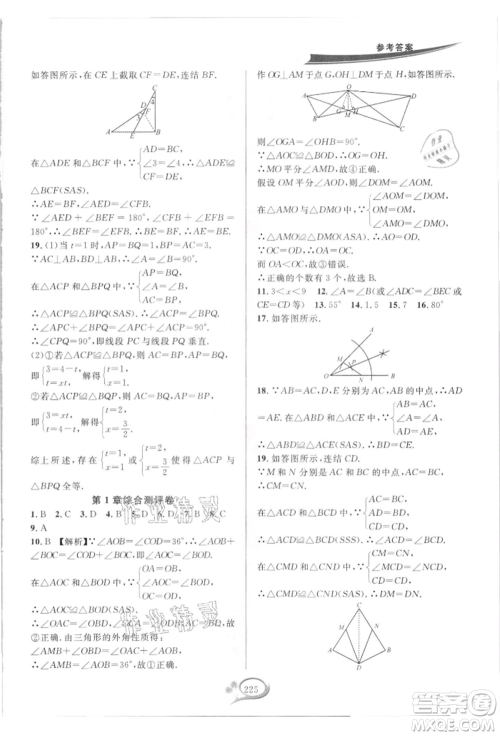 参考答案
如答图所示，在 CE 上截取 CF=DE，连结 BF.
C
3 4
F
D
A E B
在△ADE 和△CFB 中，
AD=BC，
∠3=∠4，
DE=CF，
∴△ADE≌△CFB(SAS).
∴AE=BF，∠AED=∠BFC.
∵∠AED+∠BEF=180°，∠BFC+∠BFE=180°，∴∠BEF=∠BFE. ∴BE=BF. ∴AE=BE.
19. (1)当 t=1 时，AP=BQ=1，BP=AC=3.
∵AC⊥AB，BD⊥AB，∴∠A=∠B=90°.
在△ACP 和△BPQ 中，
AP=BQ，
∠A=∠B，
AC=BP，
∴△ACP≌△BPQ(SAS). ∴∠ACP=∠BPQ.
∴∠APC+∠BPQ=∠APC+∠ACP=90°.
∴∠CPQ=90°，即线段 PC 与线段 PQ 垂直.
(2)①若△ACP≌△BPQ，则 AC=BP，AP=BQ，
即
3=4-t，
t=xt，
解得
t=1，
x=1.
②若△ACP≌△BQP，则 AC=BQ，AP=BP，
即
3=xt，
t=4-t，
解得
t=2，
x=3/2.
综上所述，存在
t=1，
x=1
或
t=2，
x=3/2
使得△ACP 与△BPQ 全等.
第 1 章综合测评卷
9. A
10. B 【解析】∵∠AOB=∠COD=36°，∴∠AOB+∠BOC=∠COD+∠BOC，即∠AOC=∠BOD.
在△AOC 和△BOD 中，
OA=OB，
∠AOC=∠BOD，
OC=OD，
∴△AOC≌△BOD(SAS).
由三角形的外角性质得
∠AMB+∠OBD=∠OAC+∠AOB，
∴∠AMB=∠AOB=36°，故②正确.
225
作 OG⊥AM 于点 G，OH⊥DM 于点 H，如答图所示，
则∠OGA=∠OHB=90°.
∵△AOC≌△BOD，∴OG=OH.
∴OM 平分∠AMD，故④正确.
假设 OM 平分∠AOD，则∠DOM=∠AOM.
在△AMO 与△DMO 中，
∠AOM=∠DOM，
OM=OM，
∠AMO=∠DMO，
∴△AMO≌△DMO(ASA). ∴AO=OD.
∵OC=OD，∴OA=OC.
而 OA<OC，故③错误.
∴正确的个数有 3 个，故选 B.
11. 3<x<9 12. ∠A=∠D 13. 55° 14. 1.5 15. 7 16. 80°
17. 如答图所示.
18. ∵D，E 分别是 AC，AB 的中点，AB=AC，∴AD=AE.
在△ADB 与△AEC 中，
AB=AC，
∠A=∠A，
AD=AE，
∴△ADB≌△AEC(SAS). ∴∠B=∠C.
19. 如答图所示，连结 CD.
∵M 和 N 分别为 CA，CB 的中点，∴CM=CN.
在△ACD 与△BCD 中，
CA=CB，
AD=BD，
CD=CD，
∴△ACD≌△BCD(SSS). ∴∠ACD=∠BCD.
在△CMD 与△CND 中，
CM=CN，
∠MCD=∠NCD，
CD=CD，
∴△CMD≌△CND(SAS). ∴DM=DN.
C
M N
A B
D
作业精灵